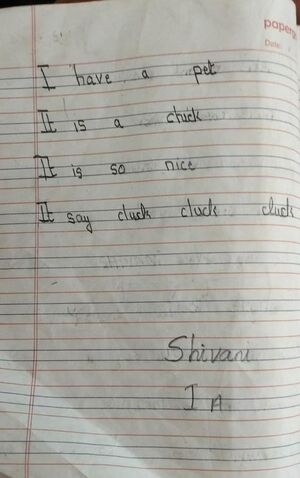 Date:
I have a pet
It is a chuck
It is so nice
It say cluck cluck cluck
Shivani
I A